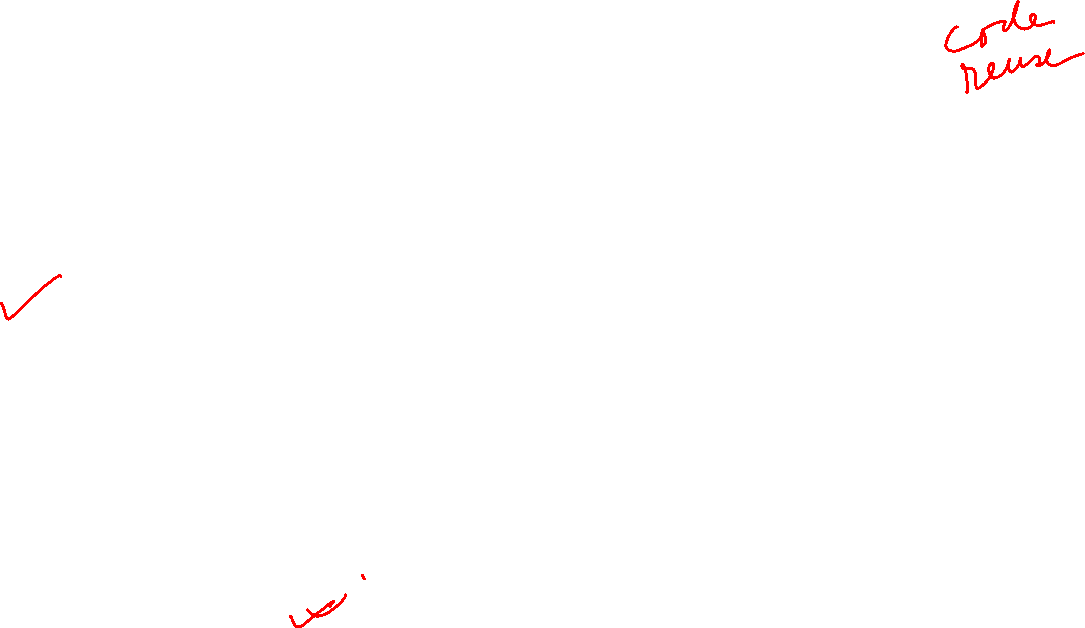 code
reuse